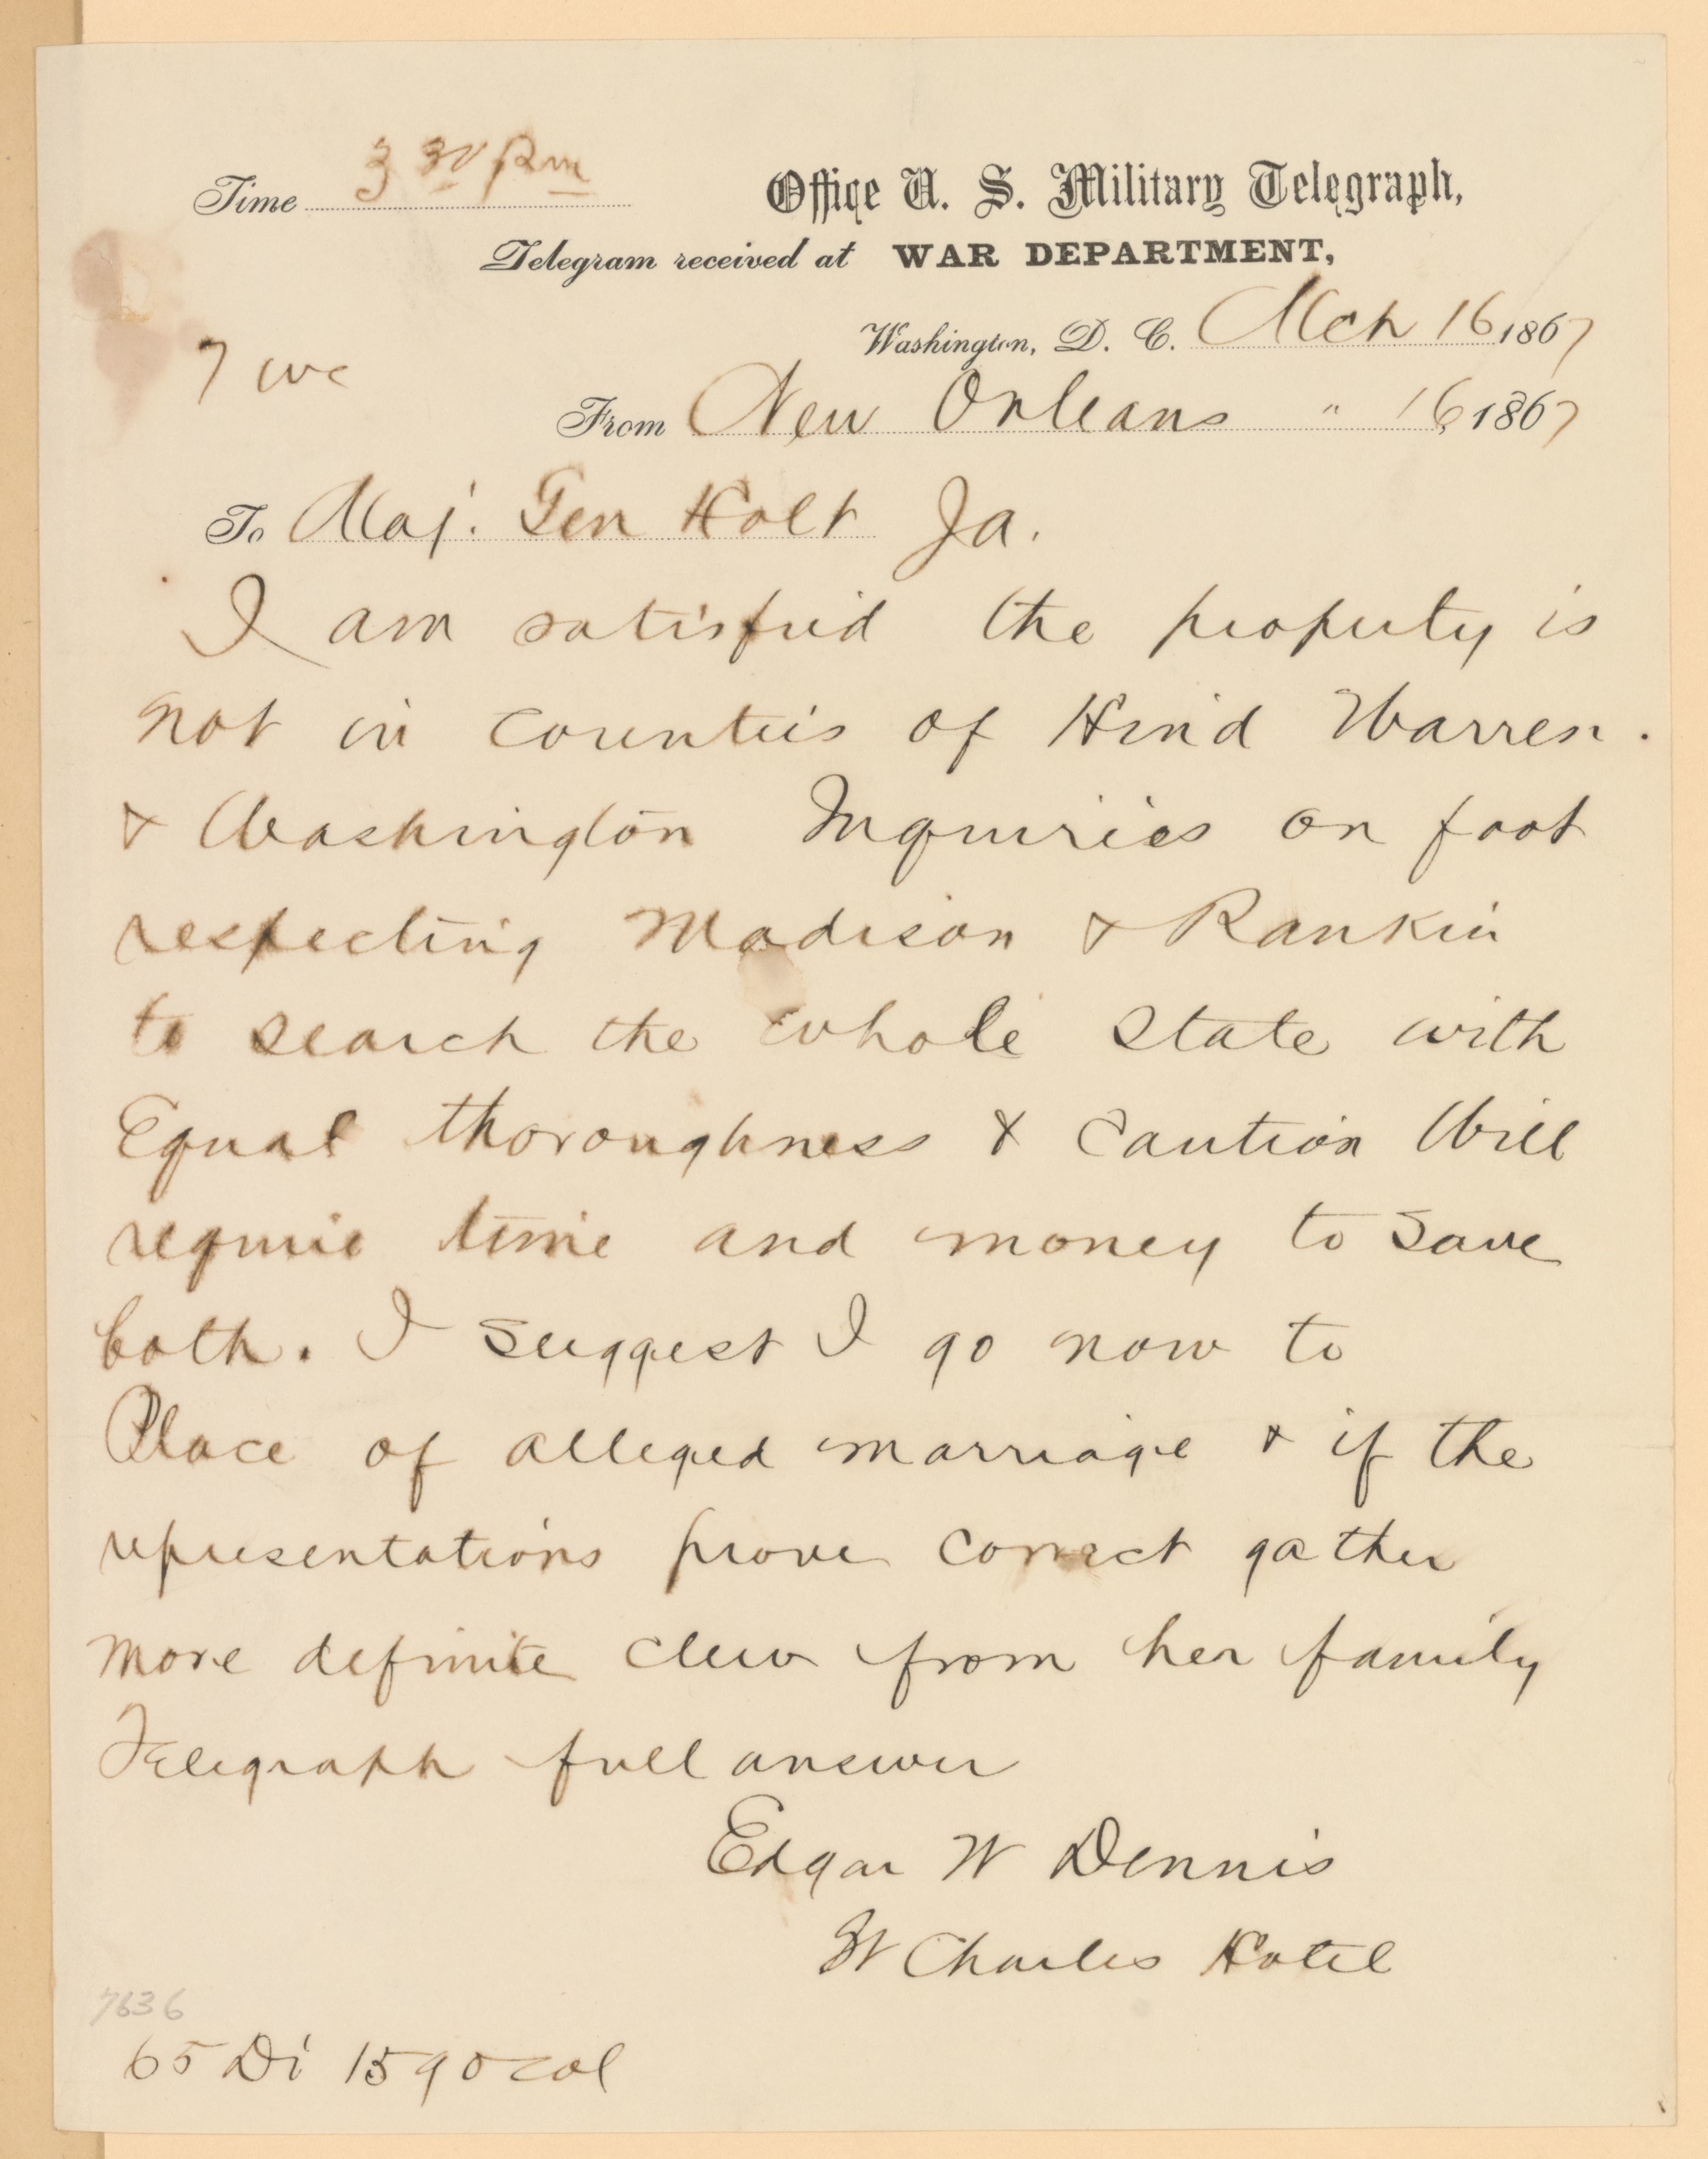 Time 3 30 pm
Office U. S. Military Telegraph,
Telegram received at WAR DEPARTMENT,
Washington, D. C. Mch 16 1867
7 We
From New Orleans " 16, 1867
To Maj. Gen Holt Ja.
I am satisfied the property is
not in counties of Hind Warren.
& Washington Inquiries on foot
respecting Madison & Rankin
to search the whole state with
Equal thoroughness & caution Will
require time and money to save
both. I suggest I go now to
Place of alleged marriage & if the
representations prove correct gather
more definite clew from her family
Telegraph full answer
Edgar W Dennis
St Charles Hotel
7636
65 Di 1590 col